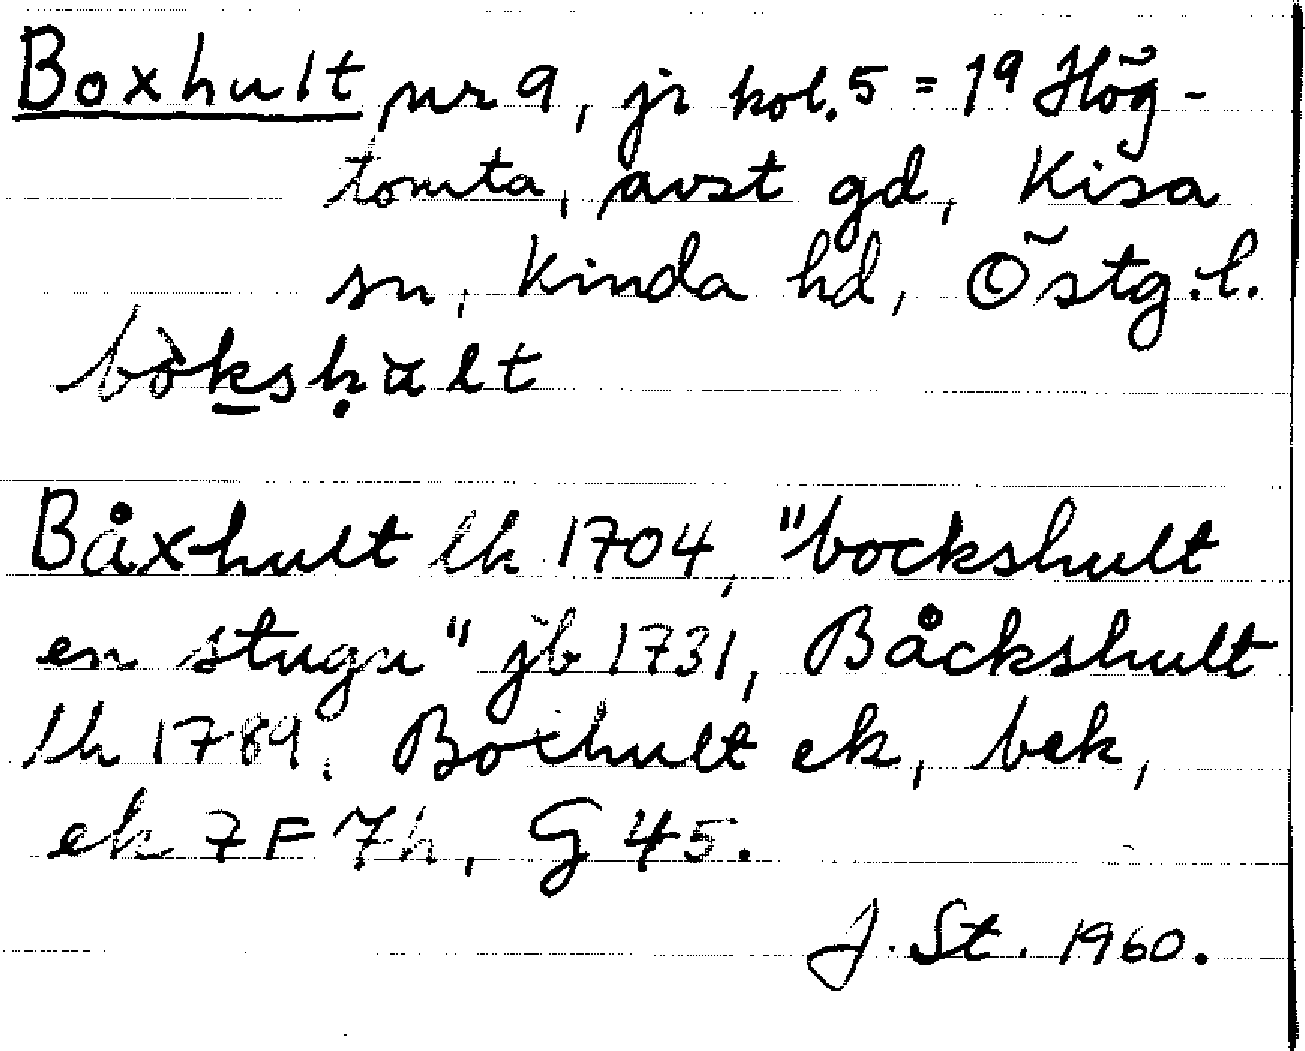 Boxhult nr 9, jr kol. 5 = 1⁹ Hög-
tomta, avst gd, Kisa
sn, Kinda hd, Östg. l.
Båxhult lk 1704, "bockshult
en stugu" jb 1731, Båckshult
lh 1789. Bochult ek, bek,
ek 7F 7h, G 45.
J. St. 1960.